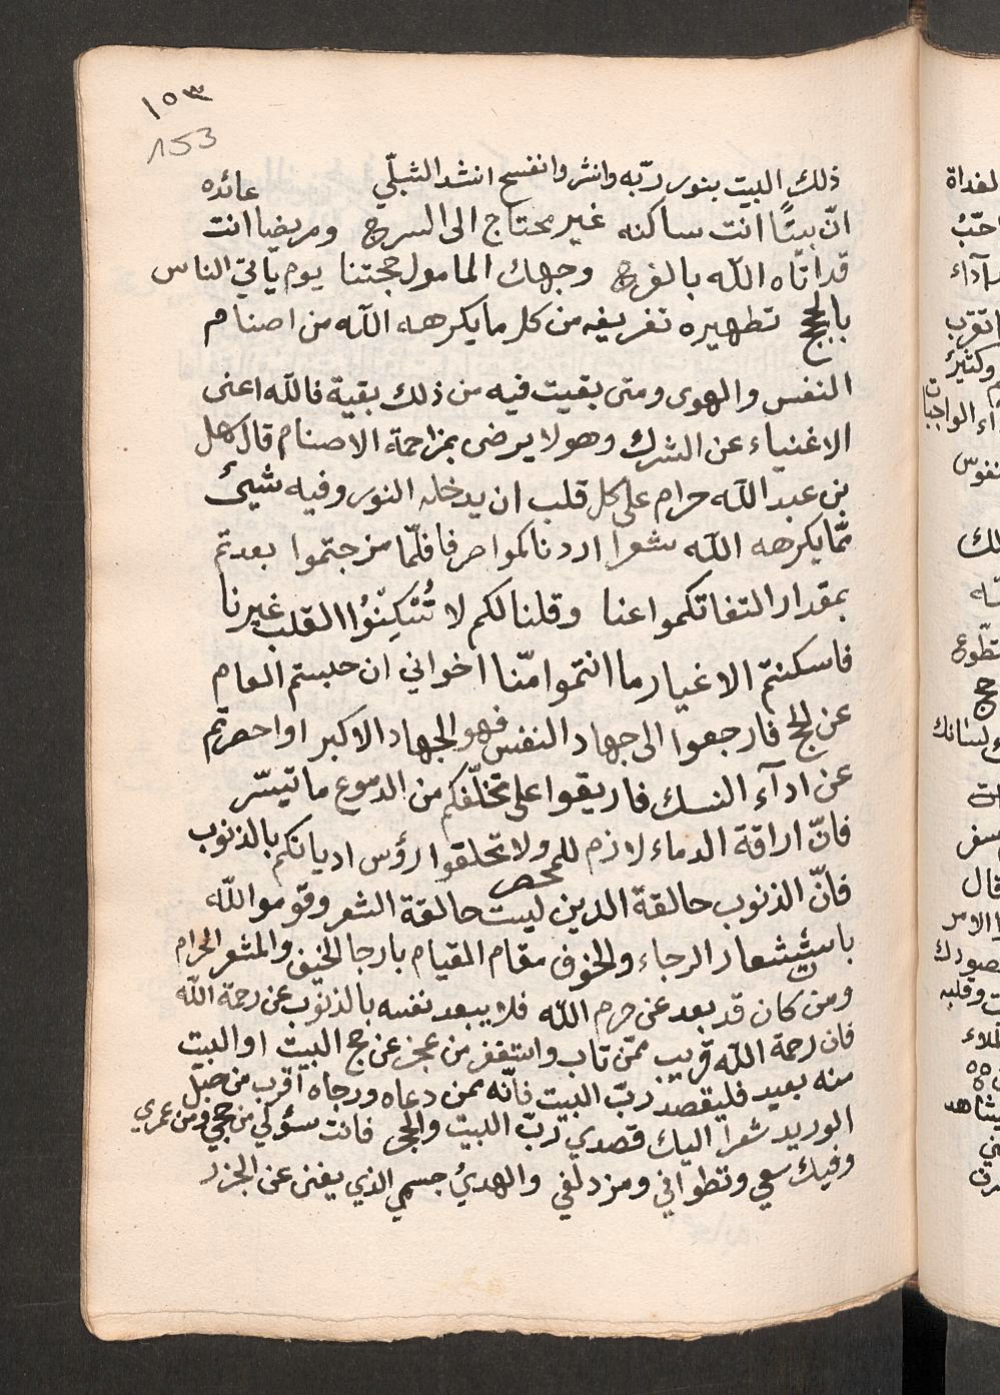 ١٥٣
153
ذلك البيت بنور ربّه وانشر وانفسح انشد الشبلّي
عائده
انّ بيتًا انت ساكنه غير محتاج الى السرج ومريضا انت
قد اتاه الله بالفرج وجهك المامول حجتنا يوم ياتي الناس
بالحجج تطهيره تفريغه من كل ما يكرهه الله من اصنام
النفس والهوى ومتى بقيت فيه من ذلك بقية فالله اغنى
الاغنياء عن الشرك وهو لا يرضى بمزاحمة الاصنام قال سهل
بن عبد الله حرام على كل قلب ان يدخله النور وفيه شيئ
ممّا يكرهه الله شعرا اردناكموا صرفا فلمّا مزجتموا بعدتم
بمقدار التفاتكموا عنا وقلنا لكم لا تُسْكِنُوا القلب غيرنا
فاسكنتم الاغيار ما انتموا منّا اخواني ان حبستم العام
عن الحج فارجعوا الى جهاد النفس فهو الجهاد الاكبر او احصرتم
عن ادآء النسك فاريقوا على تخلّفكم من الدموع ما تيسّر
فانّ اراقة الدماء لازم للمحصر ولا تحلقوا رؤس اديانكم بالذنوب
فانّ الذنوب حالقة الدين ليست حالقة الشعر وقوموا لله
باستشعار الرجاء والخوف مقام القيام بارجا الخيف والمشعر الحرام
ومن كان قد بعد عن حرم الله فلا يبعد نفسه بالذنوب عن رحمة الله
فان رحمة الله قريب ممّن تاب واستغفر من عجز عن حج البيت او البيت
منه بعيد فليقصد ربّ البيت فانّه ممن دعاه ورجاه اقرب من حبل
الوريد شعرا اليك قصدي ربّ البيت والحجر فانت سؤلي من حجي ومن عمري
وفيك سعي وتطوافي ومزدلفي والهديُ جسمي الذي يغنى عن الجزر